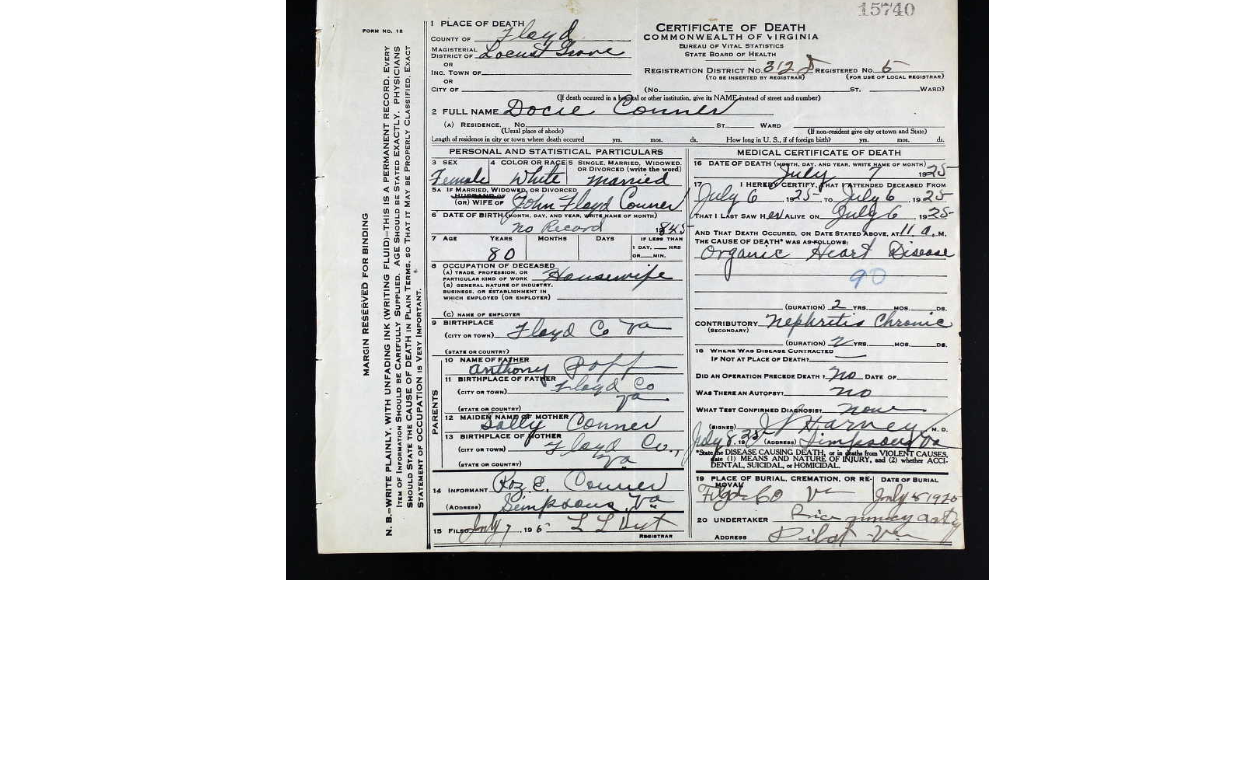 15740
FORM NO. 16
MARGIN RESERVED FOR BINDING
N. B.—WRITE PLAINLY, WITH UNFADING INK (WRITING FLUID)—THIS IS A PERMANENT RECORD. EVERY
ITEM OF INFORMATION SHOULD BE CAREFULLY SUPPLIED. AGE SHOULD BE STATED EXACTLY. PHYSICIANS
SHOULD STATE THE CAUSE OF DEATH IN PLAIN TERMS, SO THAT IT MAY BE PROPERLY CLASSIFIED. EXACT
STATEMENT OF OCCUPATION IS VERY IMPORTANT.
1 PLACE OF DEATH
COUNTY OF Floyd
MAGISTERIAL DISTRICT OF Locust Grove
OR
INC. TOWN OF
OR
CITY OF
CERTIFICATE OF DEATH
COMMONWEALTH OF VIRGINIA
BUREAU OF VITAL STATISTICS
STATE BOARD OF HEALTH
REGISTRATION DISTRICT NO. 312 REGISTERED NO. 5
(TO BE INSERTED BY REGISTRAR) (FOR USE OF LOCAL REGISTRAR)
(NO. ST. WARD)
(If death occured in a hospital or other institution, give its NAME instead of street and number)
2 FULL NAME Docie Conner
(A) RESIDENCE, NO. ST. WARD
(Usual place of abode) (If non-resident give city or town and State)
Length of residence in city or town where death occured yrs. mos. ds. How long in U. S., if of foreign birth? yrs. mos. ds.
PERSONAL AND STATISTICAL PARTICULARS
3 SEX Female
4 COLOR OR RACE White
5 SINGLE, MARRIED, WIDOWED, OR DIVORCED (write the word) married
5A IF MARRIED, WIDOWED, OR DIVORCED
HUSBAND OF
(OR) WIFE OF John Floyd Conner
6 DATE OF BIRTH (MONTH, DAY, AND YEAR, WRITE NAME OF MONTH)
No Record 1845
7 AGE YEARS MONTHS DAYS IF LESS THAN
1 DAY, HRS
OR MIN.
80
8 OCCUPATION OF DECEASED
(A) TRADE, PROFESSION, OR
PARTICULAR KIND OF WORK Housewife
(B) GENERAL NATURE OF INDUSTRY,
BUSINESS, OR ESTABLISHMENT IN
WHICH EMPLOYED (OR EMPLOYER)
(C) NAME OF EMPLOYER
9 BIRTHPLACE
(CITY OR TOWN) Floyd Co Va
(STATE OR COUNTRY)
PARENTS
10 NAME OF FATHER Anthony Poff
11 BIRTHPLACE OF FATHER
(CITY OR TOWN) Floyd Co
(STATE OR COUNTRY) Va
12 MAIDEN NAME OF MOTHER Sally Conner
13 BIRTHPLACE OF MOTHER
(CITY OR TOWN) Floyd Co.,
(STATE OR COUNTRY) Va
14 INFORMANT Roz E. Conner
(ADDRESS) Simpsons, Va
15 FILED July 7, 192 L L
REGISTRAR
MEDICAL CERTIFICATE OF DEATH
16 DATE OF DEATH (MONTH, DAY, AND YEAR, WRITE NAME OF MONTH)
July 7 1925
17 I HEREBY CERTIFY, THAT I ATTENDED DECEASED FROM
July 6 1925 TO July 6 1925
THAT I LAST SAW HER ALIVE ON July 6 1925
AND THAT DEATH OCCURED, ON DATE STATED ABOVE, AT 11 A.M.
THE CAUSE OF DEATH* WAS AS FOLLOWS:
Organic Heart Disease
90
(DURATION) 2 YRS. MOS. DS.
CONTRIBUTORY Nephritis Chronic
(SECONDARY)
(DURATION) 2 YRS. MOS. DS.
18 WHERE WAS DISEASE CONTRACTED
IF NOT AT PLACE OF DEATH?
DID AN OPERATION PRECEDE DEATH? No DATE OF
WAS THERE AN AUTOPSY? No
WHAT TEST CONFIRMED DIAGNOSIS? None
(SIGNED) Harvey M. D.
July 8, 1925 (ADDRESS) Simpsons Va
*State the DISEASE CAUSING DEATH, or in deaths from VIOLENT CAUSES,
state (1) MEANS AND NATURE OF INJURY, and (2) whether ACCI-
DENTAL, SUICIDAL, or HOMICIDAL.
19 PLACE OF BURIAL, CREMATION, OR RE-
MOVAL DATE OF BURIAL
Floyd Co Va July 8 1925
20 UNDERTAKER
ADDRESS Pilot Va